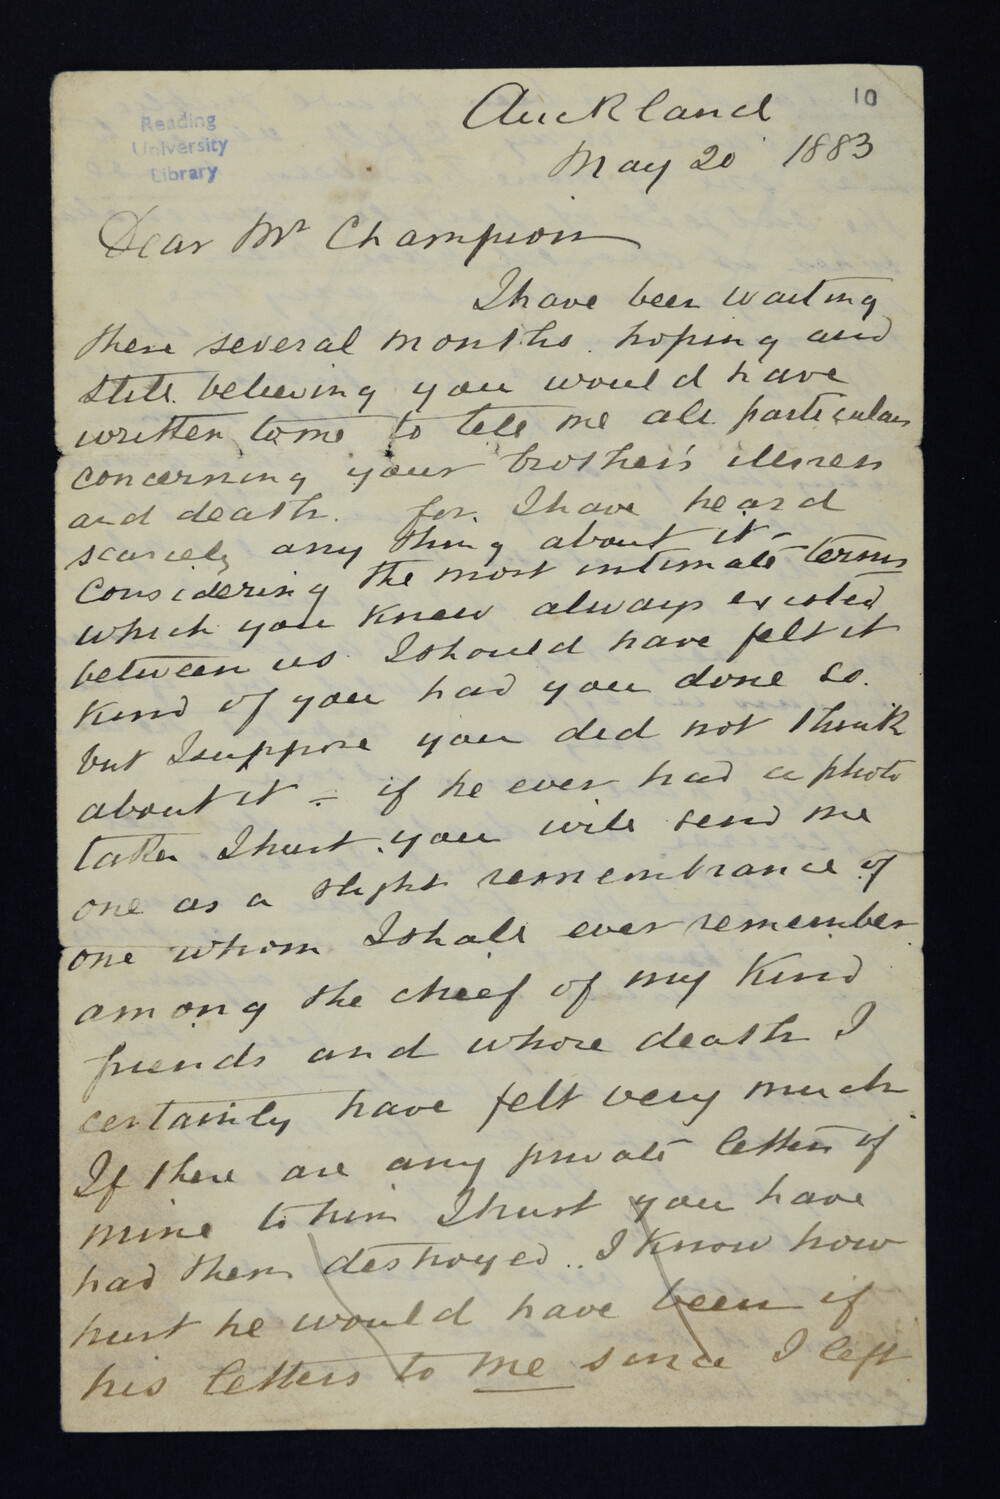 10
Reading
University
Library
Auckland
May 20 1883
Dear Mr Champion
I have been waiting
these several months. hoping and
still believing you would have
written to me to tell me all particulars
concerning your brother's illness
and death. for I have heard
scarcely any thing about it -
Considering the most intimate terms
which you knew always existed
between us I should have felt it
kind of you had you done so.
but I suppose you did not think
about it - if he ever had a photo
taken I trust you will send me
one as a slight remembrance of
one whom I shall ever remember
among the chief of my kind
friends and whose death I
certainly have felt very much
If there are any private letters of
mine to him I trust you have
had them destroyed.. I know how
hurt he would have been if
his letters to me since I left